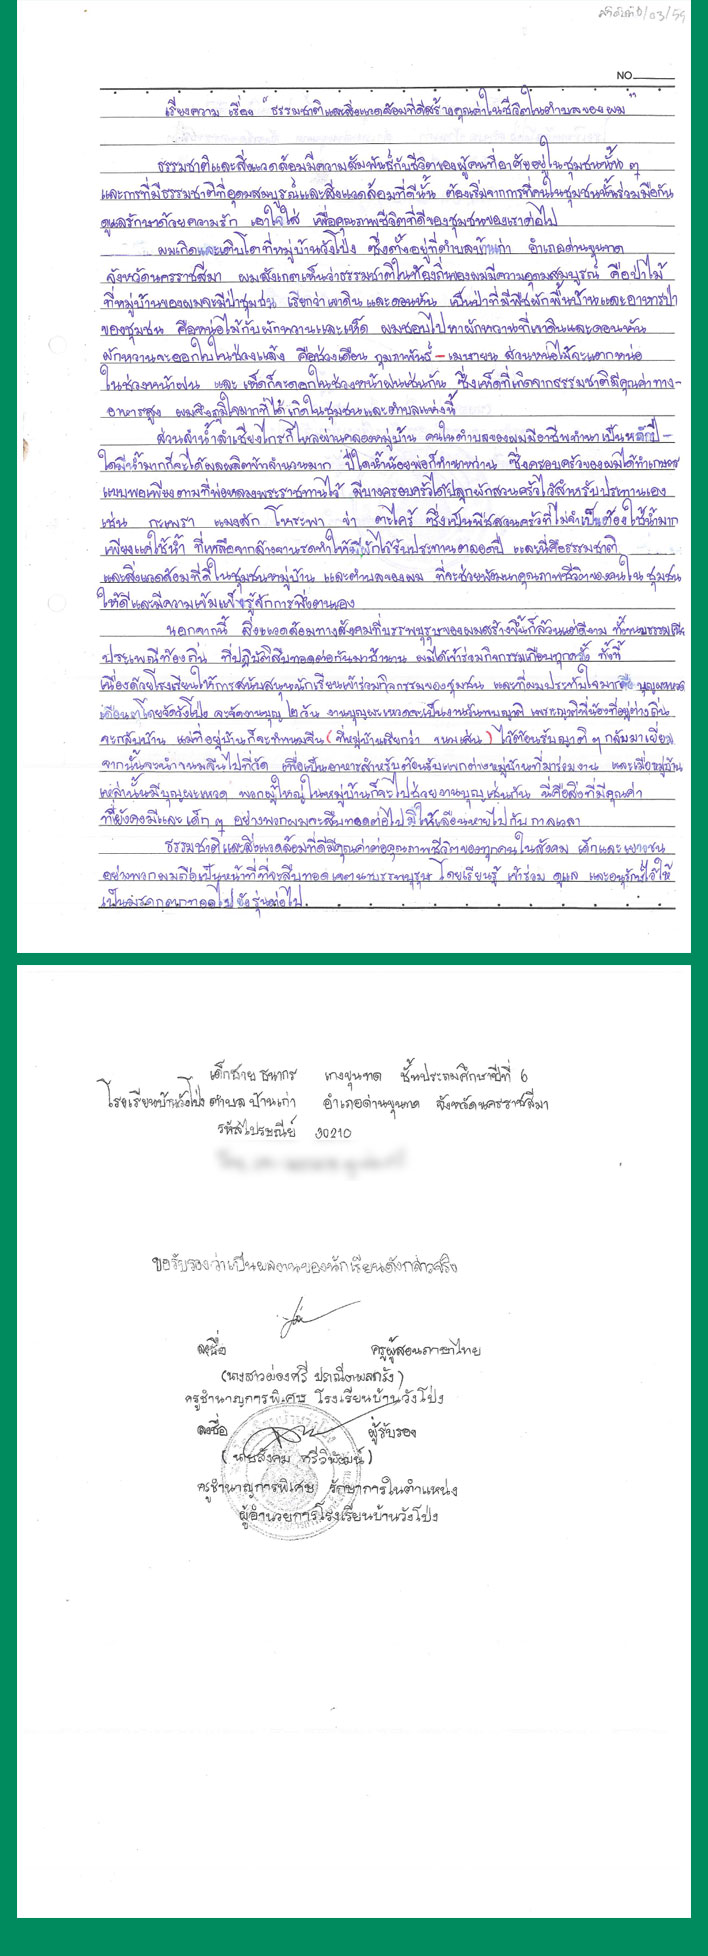 NO.
เรียงความ เรื่อง " ธรรมชาติและสิ่งแวดล้อมที่ดีสร้างคุณค่าในชีวิตในตำบลของผม "
ธรรมชาติและสิ่งแวดล้อมมีความสัมพันธ์กับชีวิตของผู้คนที่อาศัยอยู่ในชุมชนนั้น ๆ
และการที่มีธรรมชาติที่อุดมสมบูรณ์และสิ่งแวดล้อมที่ดีนั้น ต้องเริ่มจากการที่คนในชุมชนนั้นร่วมมือกัน
ดูแลรักษาด้วยความรัก เอาใจใส่ เพื่อคุณภาพชีวิตที่ดีของชุมชนของเราต่อไป
ผมเกิดและเติบโตที่หมู่บ้านวังโป่ง ซึ่งตั้งอยู่ที่ตำบลบ้านเก่า อำเภอด่านขุนทด
จังหวัดนครราชสีมา ผมสังเกตเห็นว่าธรรมชาติในท้องถิ่นของผมมีความอุดมสมบูรณ์ คือป่าไม้
ที่หมู่บ้านของผมจะมีป่าชุมชน เรียกว่าเขาดินและดอนหัน เป็นป่าที่มีพืชผักพื้นบ้านและอาหารป่า
ของชุมชน คือหน่อไม้กับผักหวานและเห็ด ผมชอบไปหาผักหวานที่เขาดินและดอนหัน
ผักหวานจะออกใบในช่วงแล้ง คือช่วงเดือน กุมภาพันธ์ - เมษายน ส่วนหน่อไม้จะแตกหน่อ
ในช่วงหน้าฝน และ เห็ดก็จะดอกในช่วงหน้าฝนเช่นกัน ซึ่งเห็ดที่เกิดจากธรรมชาติมีคุณค่าทาง-
อาหารสูง ผมจึงภูมิใจมากที่ได้เกิดในชุมชนและตำบลแห่งนี้
ส่วนลำน้ำลำเชียงไกรก็ไหลผ่านคลองหมู่บ้าน คนในตำบลของผมมีอาชีพทำนาเป็นหลักปี-
ใดมีน้ำมากก็จะได้ผลผลิตข้าวจำนวนมาก ปีใดน้ำน้อยพ่อก็ทำนาหว่าน ซึ่งครอบครัวของผมได้ทำเกษตร
แบบพอเพียงตามที่พ่อหลวงพระราชทานไว้ มีบางครอบครัวได้ปลูกผักสวนครัวไว้สำหรับประทานเอง
เช่น กะเพรา แมงลัก โหระพา ข่า ตะไคร้ ซึ่งเป็นพืชสวนครัวที่ไม่จำเป็นต้องใช้น้ำมาก
เพียงแค่ใช้น้ำ ที่เหลือจากล้างจานรดทำให้มีผักไว้รับประทานตลอดปี และนี่คือธรรมชาติ
และสิ่งแวดล้อมที่ดีในชุมชนหมู่บ้าน และตำบลของผม ที่จะช่วยพัฒนาคุณภาพชีวิตของคนในชุมชน
ให้ดีและมีความเข้มแข็งรู้จักการพึ่งตนเอง
นอกจากนี้ สิ่งแวดล้อมทางสังคมที่บรรพบุรุษของผมสร้างขึ้นก็ล้วนแต่ดีงาม ทั้งขนบธรรมเนียม
ประเพณีท้องถิ่น ที่ปฏิบัติสืบทอดต่อกันมาช้านาน ผมได้เข้าร่วมกิจกรรมเกือบทุกครั้ง ทั้งนี้
เนื่องด้วยโรงเรียนให้การสนับสนุนนักเรียนเข้าร่วมกิจกรรมของชุมชน และที่ผมประทับใจมากคือ บุญผะเหวด
โดยวัดวังโป่ง จะจัดงานบุญ ๒ วัน งานบุญผะเหวดจะเป็นงานวันพบญาติ เพราะญาติพี่น้องที่อยู่ต่างถิ่น
จะกลับบ้าน แม่ที่อยู่บ้านก็จะทำขนมจีน (ที่หมู่บ้านเรียกว่า ขนมเส้น) ไว้ต้อนรับญาติ ๆ กลับมาเยี่ยม
จากนั้นจะนำขนมจีนไปที่วัด เพื่อเป็นอาหารสำหรับต้อนรับแขกต่างหมู่บ้านที่มาร่วมงาน และเมื่อหมู่บ้าน
เหล่านั้นมีบุญผะเหวด พวกผู้ใหญ่ในหมู่บ้านก็จะไปช่วยงานบุญเช่นกัน นี่คือสิ่งที่มีคุณค่า
ที่ยังคงมีและเด็ก ๆ อย่างพวกผมจะสืบทอดต่อไปมิให้เลือนหายไปกับกาลเวลา
ธรรมชาติและสิ่งแวดล้อมที่ดีมีคุณค่าต่อคุณภาพชีวิตของทุกคนในสังคม เด็กและเยาวชน
อย่างพวกผมถือเป็นหน้าที่ที่จะสืบทอดเจตนาบรรพบุรุษ โดยเรียนรู้ เข้าร่วม ดูแล และอนุรักษ์ไว้ให้
เป็นมรดกตกทอดไปยังรุ่นต่อไป.
เด็กชาย ธนากร เกงขุนทด ชั้นประถมศึกษาปีที่ 6
โรงเรียนบ้านวังโป่ง ตำบล บ้านเก่า อำเภอด่านขุนทด จังหวัดนครราชสีมา
รหัสไปรษณีย์ 30210
ขอรับรองว่าเป็นผลงานของนักเรียนดังกล่าวจริง
ลงชื่อ ครูผู้สอนภาษาไทย
(นางสาวผ่องศรี
ครูชำนาญการพิเศษ โรงเรียนบ้านวังโป่ง
ลงชื่อ ผู้รับรอง
(นายสังคม ศรีวิพัฒน์)
ครูชำนาญการพิเศษ รักษาการในตำแหน่ง
ผู้อำนวยการโรงเรียนบ้านวังโป่ง